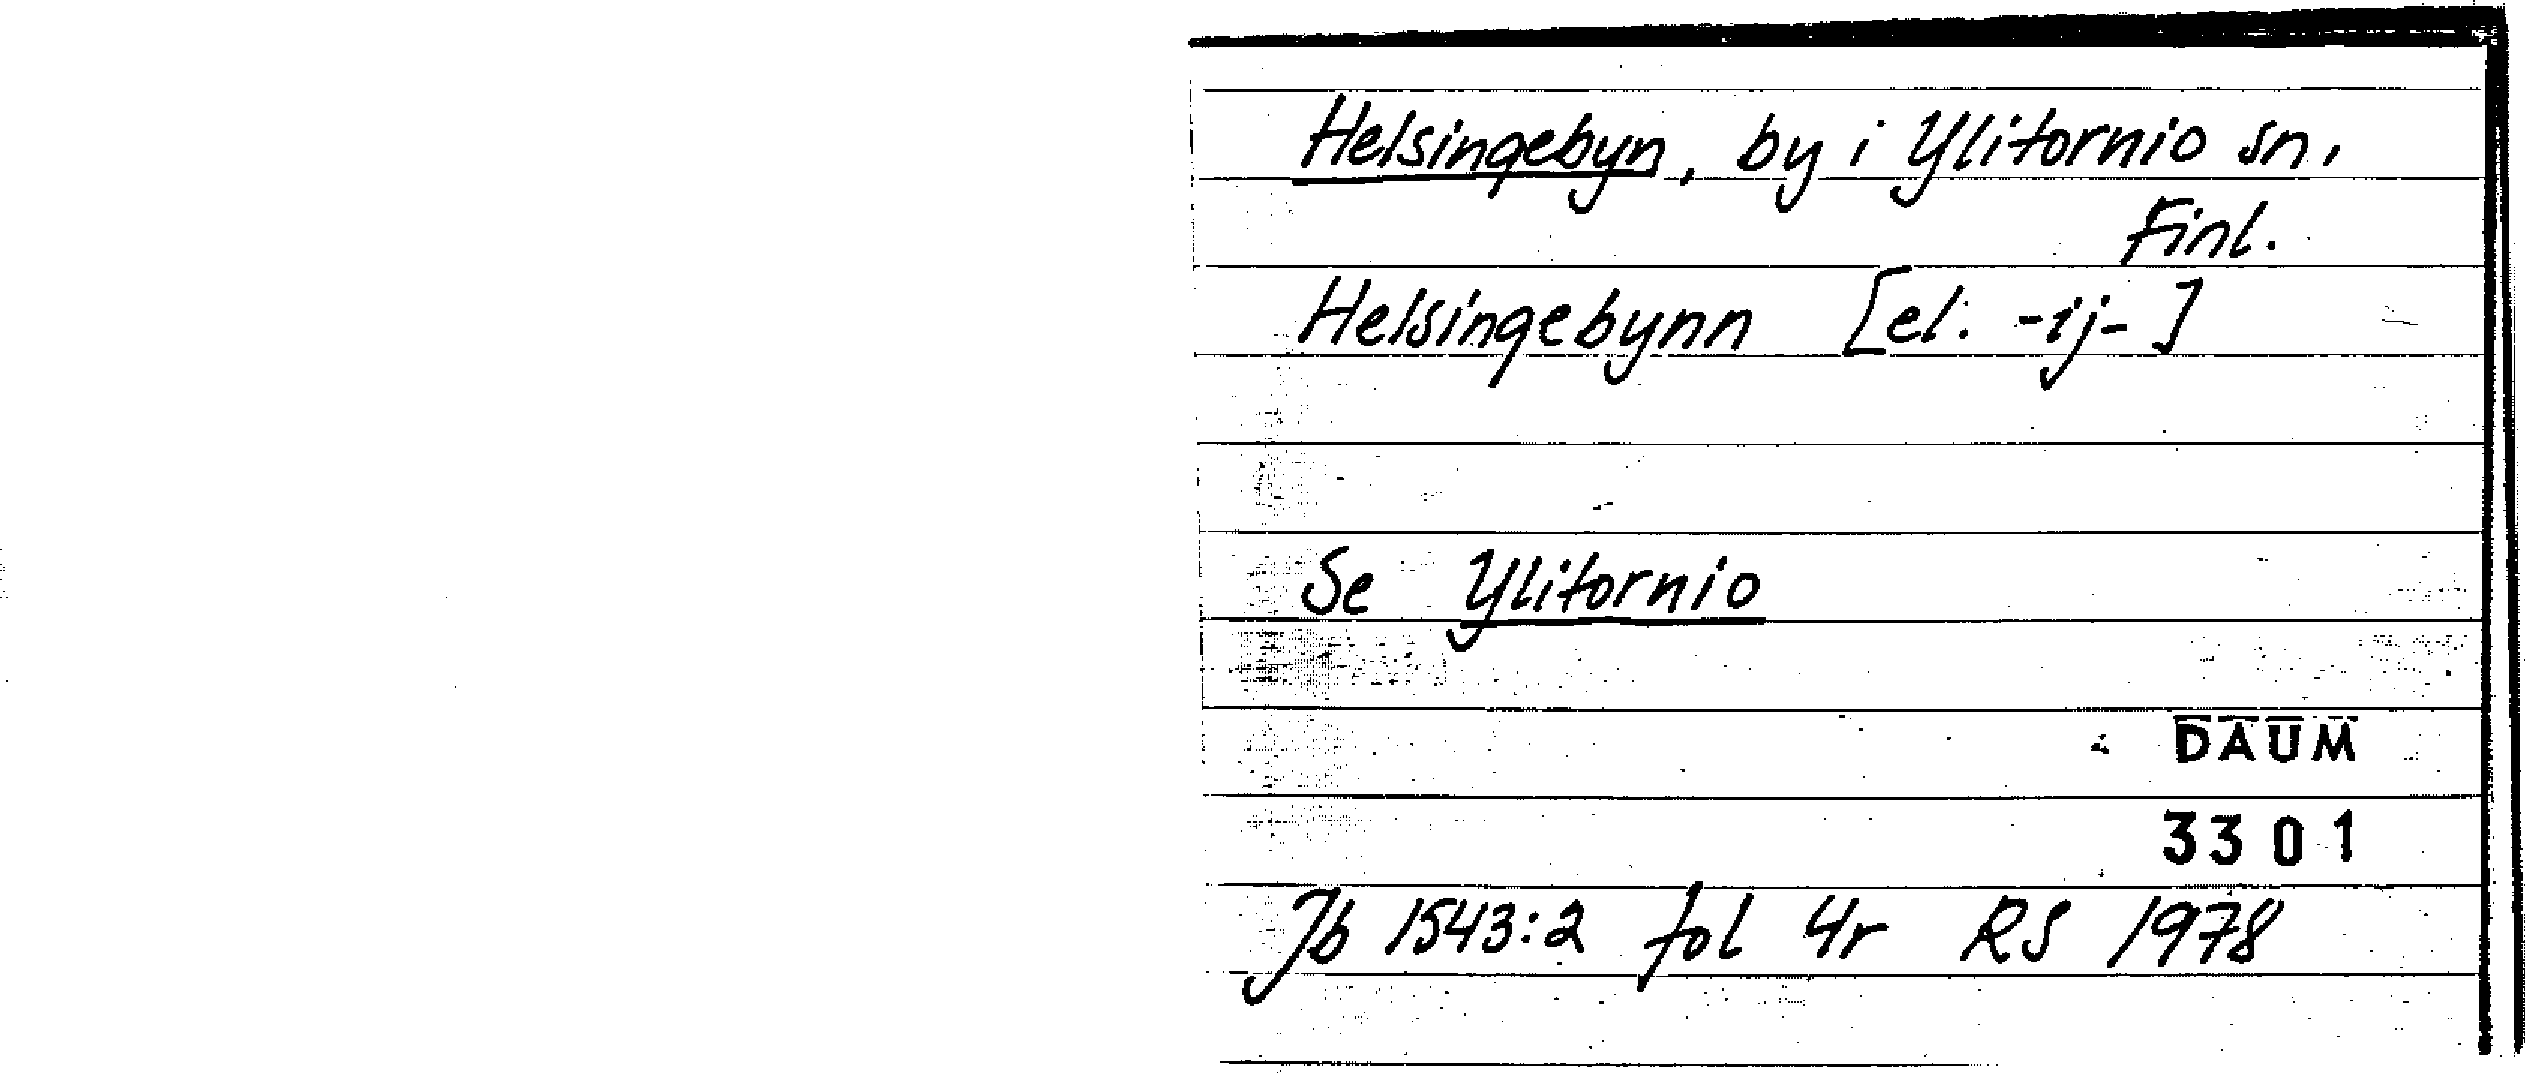 Helsingebyn, by i Ylitornio sn,
Finl.
Helsingebynn [el. -ij-]
Se Ylitornio
DAUM
3301
Jb 1543:2 fol 4r RS 1978